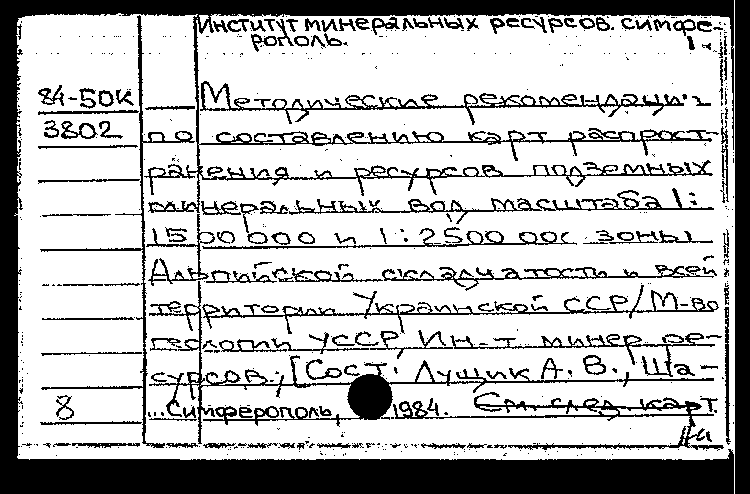 Институт минеральных ресурсов. Симфе-
рополь.
1.
84-50К Методические рекомендации
3802 по составлению карт распрост-
ранения и ресурсов подземных
минеральных вод масштаба 1:
1500000 и 1:2500 000 зоны
Альпийской складчатости и всей
территории Украинской ССР/М-во
геологии УССР, Ин-т минер. ре-
сурсов.; [Сост. Лущик А. В., Ша-
8 ...Симферополь, 1984. См. след. карт.